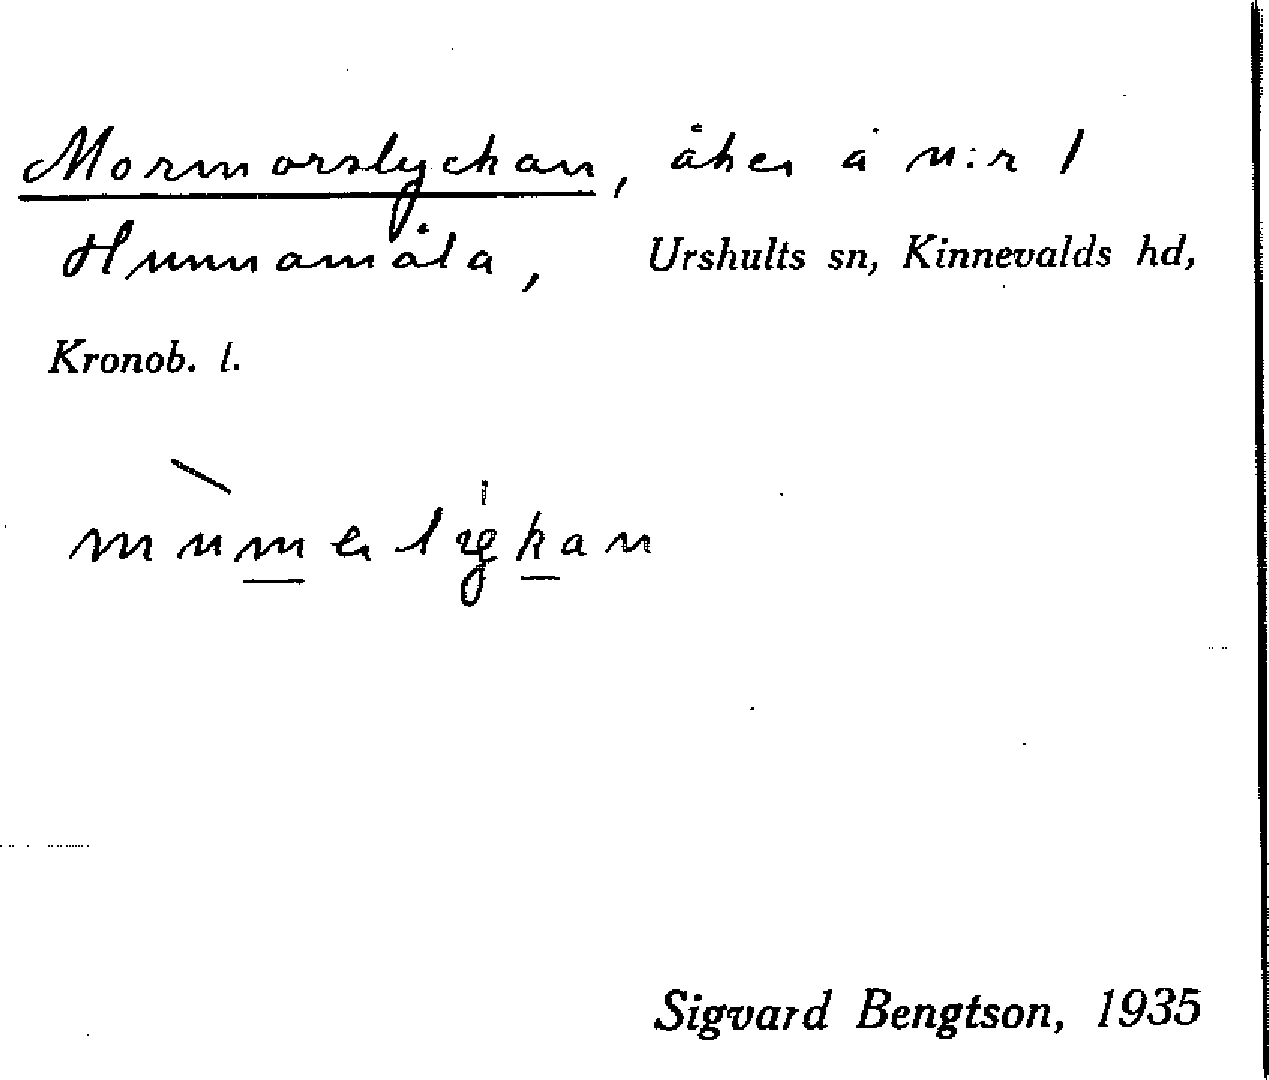 Mormorslyckan, åker å n:r 1
Hunnamåla, Urshults sn, Kinnevalds hd,
Kronob. l.
Sigvard Bengtson, 1935